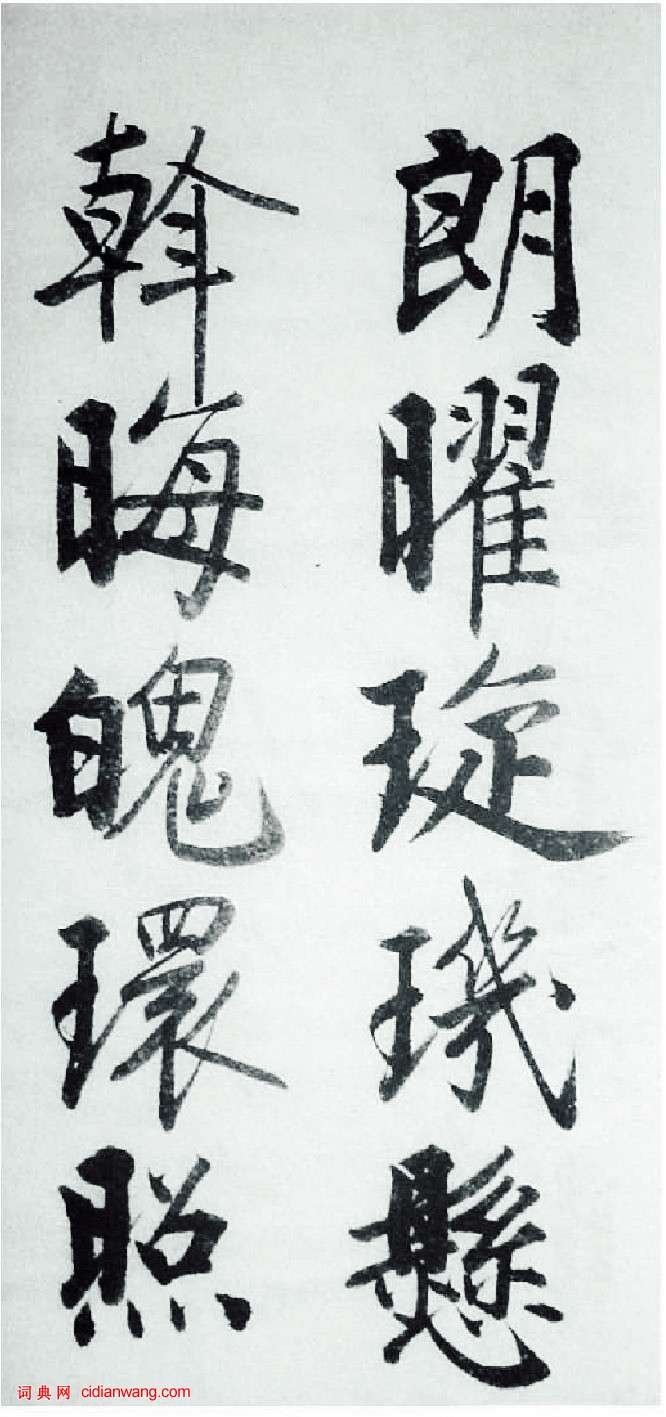 朗曜琁璣懸
斡晦魄環照
词典网 cidianwang.com